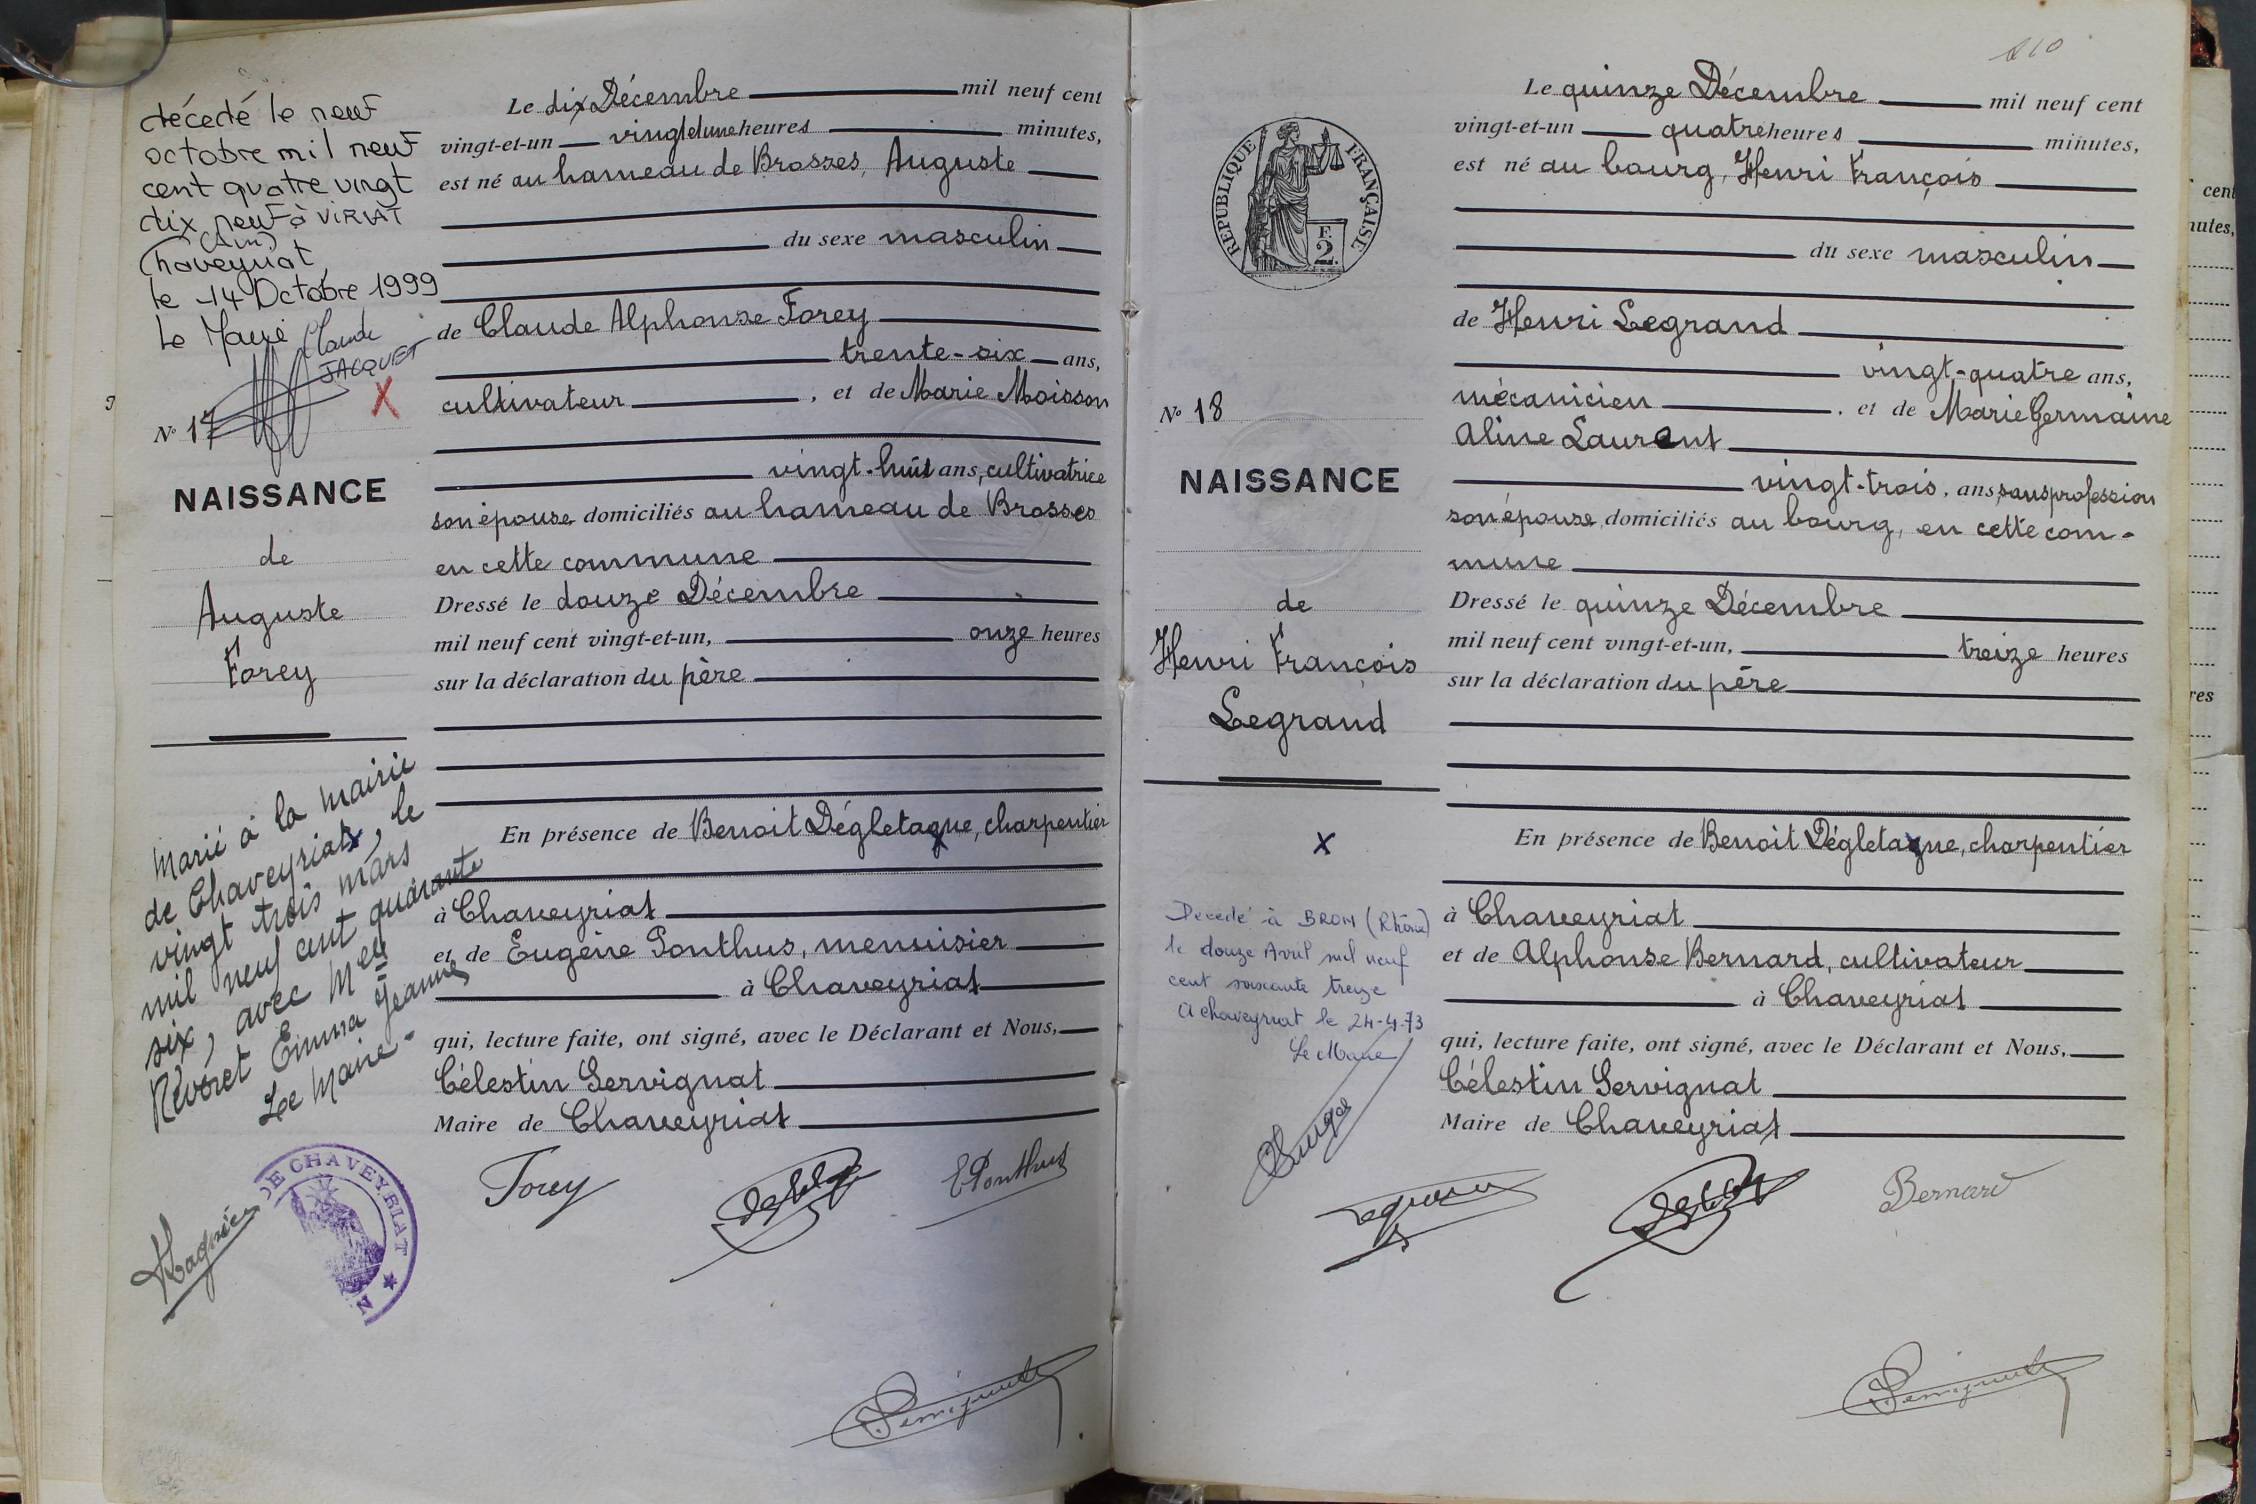 décédé le neuf
octobre mil neuf
cent quatre vingt
dix neuf à VIRIAT
(Ain)
Chaveyriat,
le 14 Octobre 1999
Le Maire Claude
JACQUET
N° 17
NAISSANCE
de
Auguste
Forey
Marié à la mairie
de Chaveyriat, le
vingt trois mars
mil neuf cent quarante
six, avec Melle
Révéret Emma Jeanne
Le Maire.
DE CHAVEYRIAT
Le dix Décembre mil neuf cent
vingt-et-un vingt et une heures minutes,
est né au hameau de Brosses, Auguste
du sexe masculin
de Claude Alphonse Forey
trente-six ans,
cultivateur, et de Marie Moisson
vingt-huit ans, cultivatrice
son épouse domiciliés au hameau de Brosses
en cette commune
Dressé le douze Décembre
mil neuf cent vingt-et-un, onze heures
sur la déclaration du père
En présence de Benoit Dégletagne, charpentier
à Chaveyriat
et de Eugène Ponthus, menuisier
à Chaveyriat
qui, lecture faite, ont signé, avec le Déclarant et Nous,
Célestin Servignat
Maire de Chaveyriat
Forey
EPonthus
210
REPUBLIQUE FRANÇAISE
F.
2.
N° 18
NAISSANCE
de
Henri François
Legrand
X
Decedé à BRON (Rhône)
le douze Avril mil neuf
cent soixante treize
A chaveyriat le 24-4-73
Le Maire
Le quinze Décembre mil neuf cent
vingt-et-un quatre heures minutes,
est né au bourg, Henri François
du sexe masculin
de Henri Legrand
vingt-quatre ans,
mécanicien, et de Marie Germaine
Aline Laurent
vingt-trois, ans, sans profession
son épouse, domiciliés au bourg, en cette com-
mune
Dressé le quinze Décembre
mil neuf cent vingt-et-un, treize heures
sur la déclaration du père
En présence de Benoit Dégletagne, charpentier
à Chaveyriat
et de Alphonse Bernard, cultivateur
à Chaveyriat
qui, lecture faite, ont signé, avec le Déclarant et Nous,
Célestin Servignat
Maire de Chaveyriat
Bernard